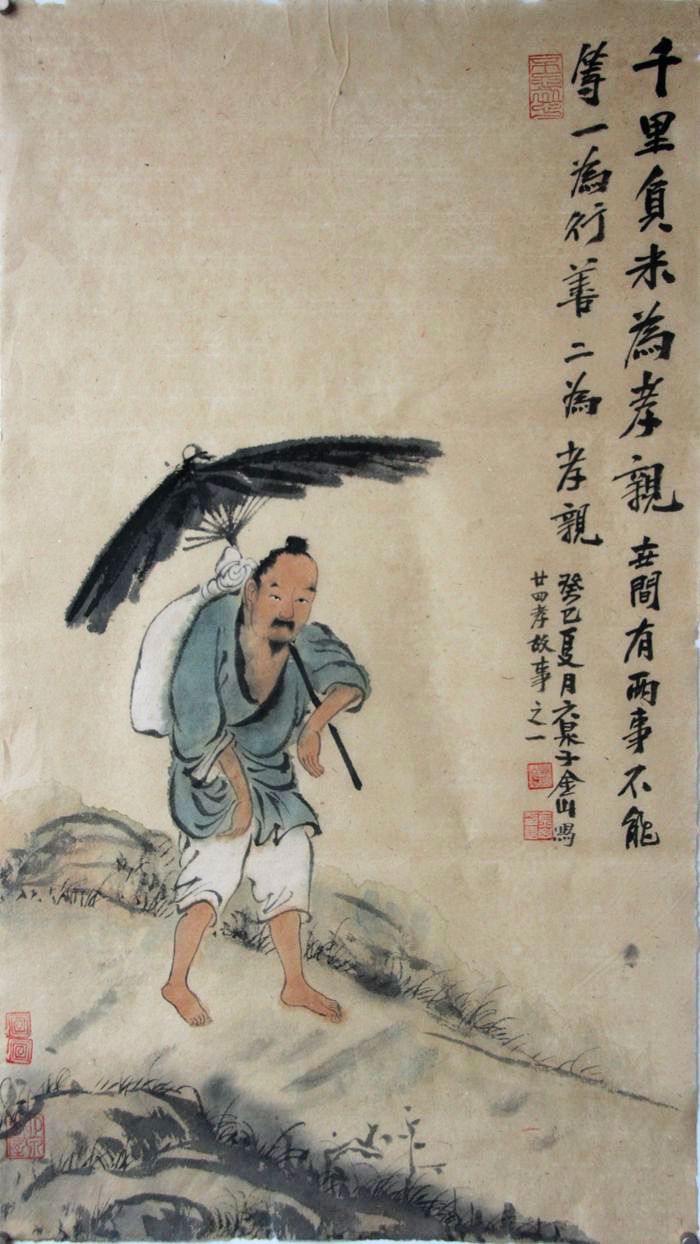 千里負米為孝親世間有兩事不能
等一為行善二為孝親
癸巳夏月六泉子金山寫
廿四孝故事之一